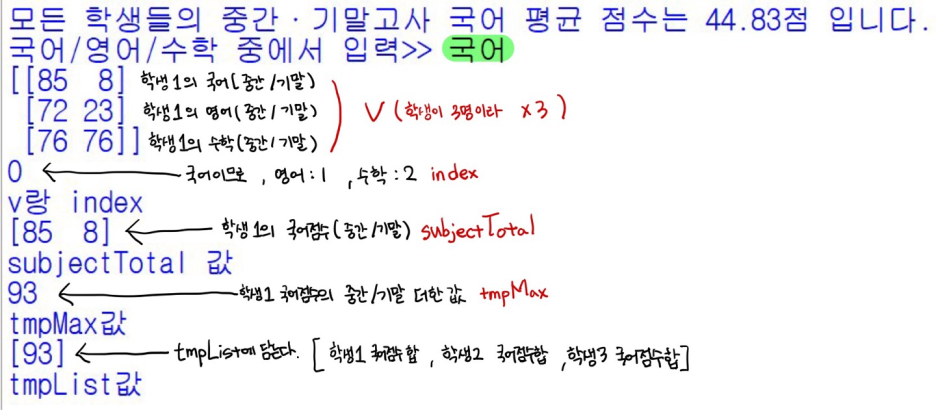 모든 학생들의 중간·기말고사 국어 평균 점수는 44.83점 입니다.
국어/영어/수학 중에서 입력>> 국어
[[85  8] 학생1의 국어(중간/기말)
[72 23] 학생1의 영어(중간/기말) V (학생이 3명이라 x3)
[76 76]] 학생1의 수학(중간/기말)
0 국어이므로, 영어:1, 수학:2 index
v랑 index
[85  8] 학생1의 국어점수(중간/기말) subjectTotal
subjectTotal 값
93 학생1 국어점수의 중간/기말 더한 값 tmpMax
tmpMax값
[93] tmpList에 담는다. [학생1 국어점수합, 학생2 국어점수합, 학생3 국어점수합]
tmpList값